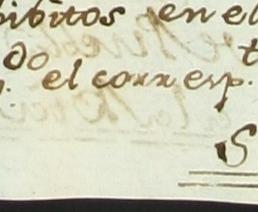 bitos en el
do el corresp. t
S